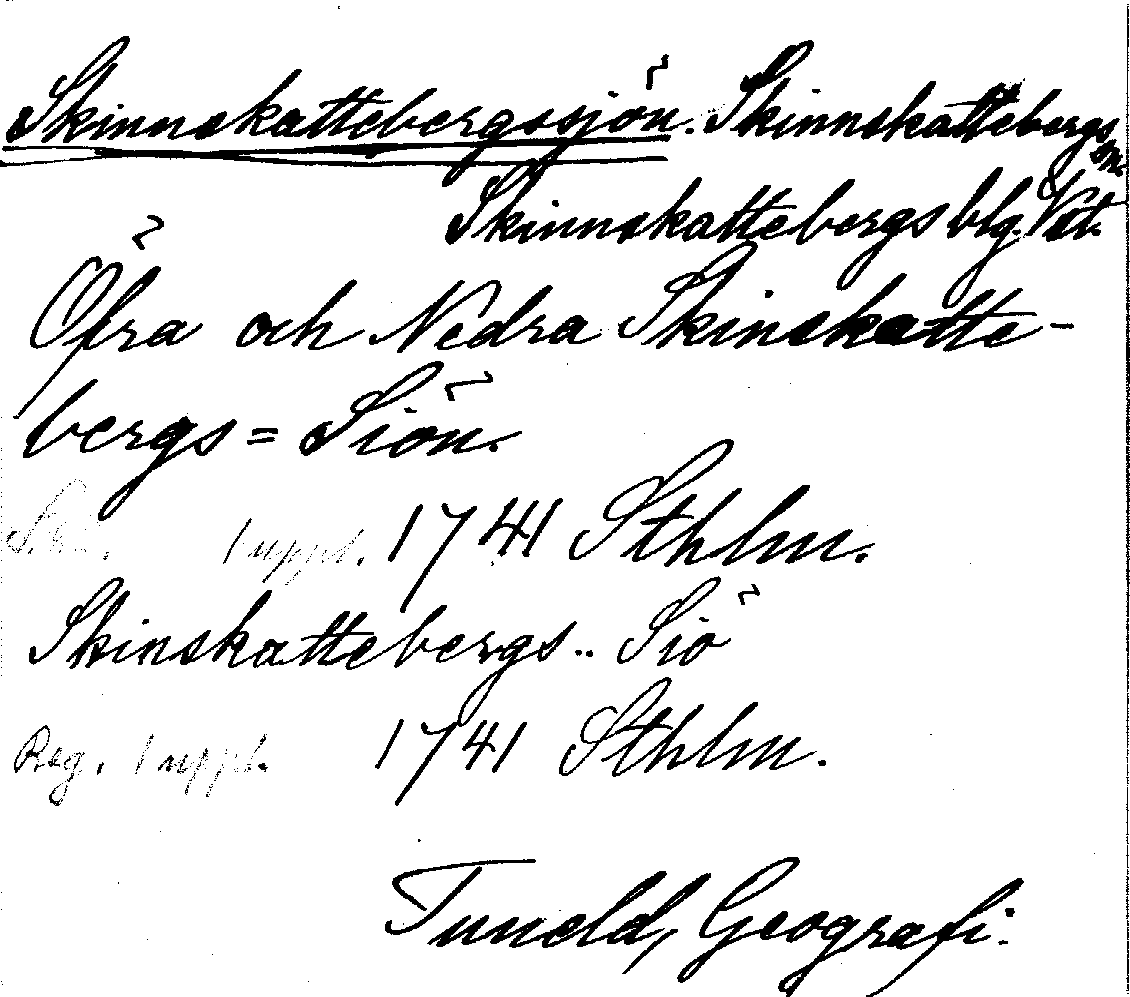 Skinnskattebergssjön. Skinnskattebergs sn.
Skinnskattebergs blg. Vst.
Öfra och Nedra Skinskatte-
bergs=Siön.
1 uppl. 1741 Sthlm.
Skinskattebergs.. Siö
Reg. 1 uppl. 1741 Sthlm.
Tuneld, Geografi.